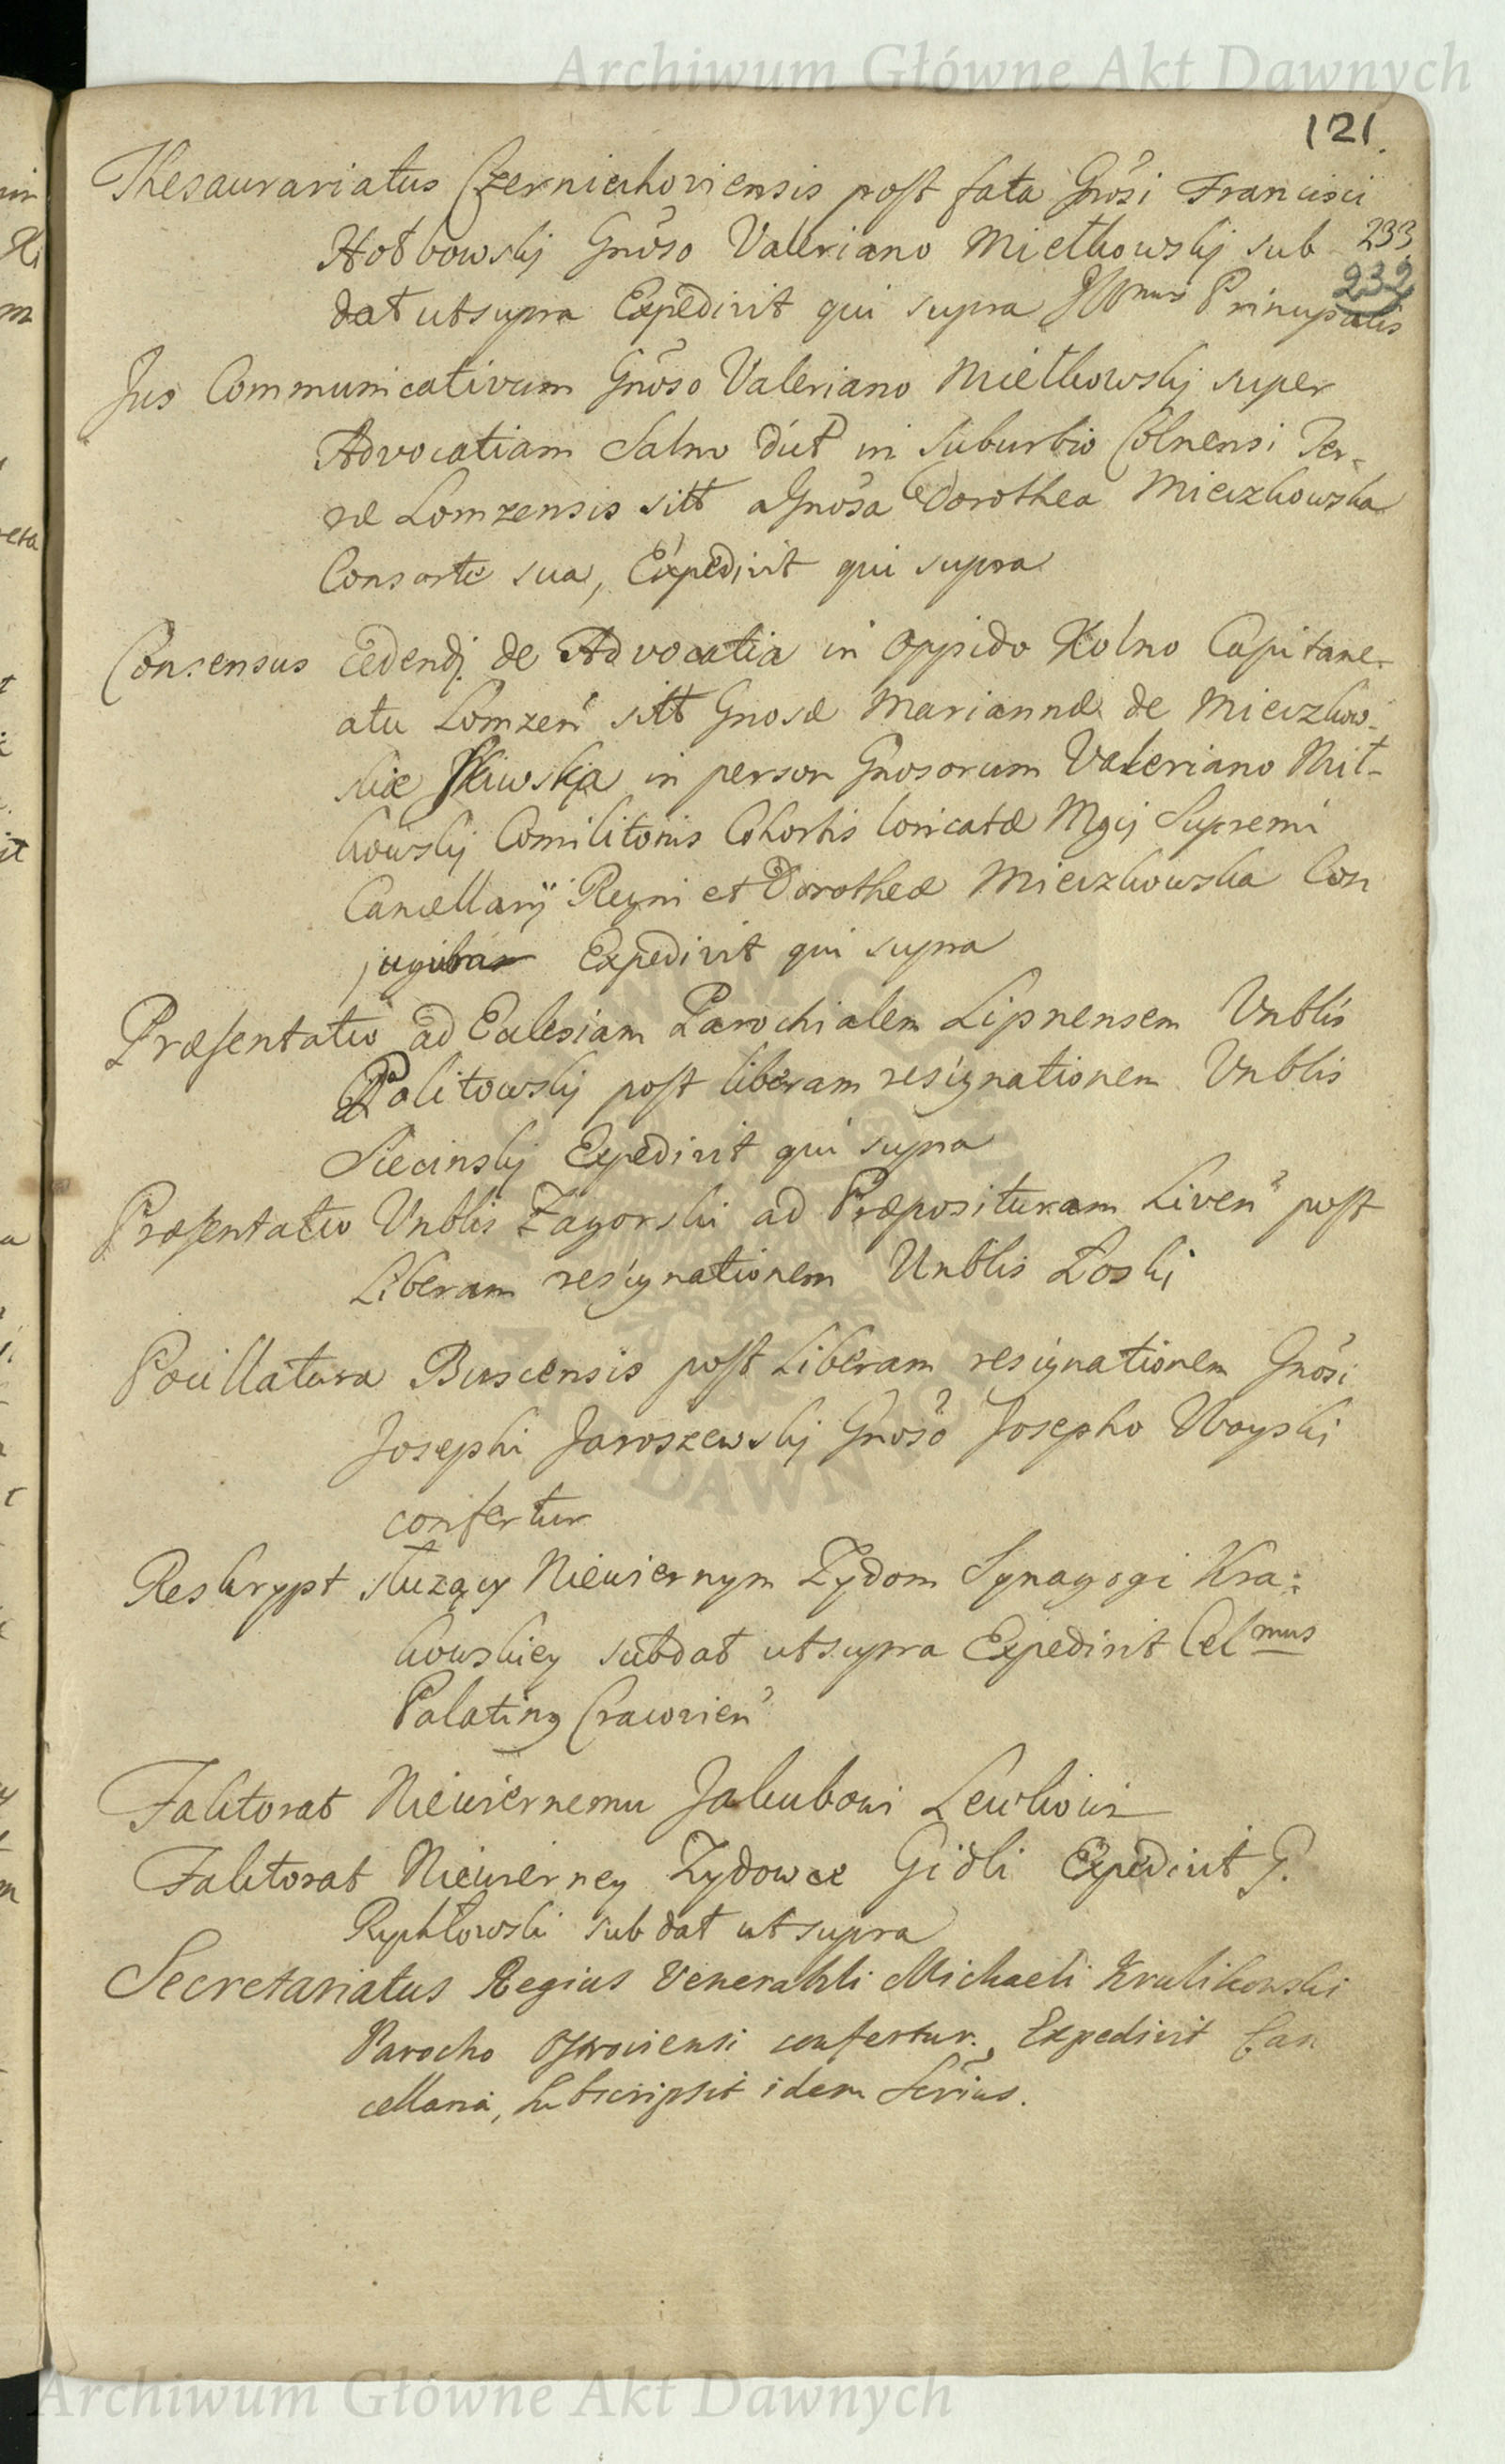 Archiwum Główne Akt Dawnych
121.
Thesaurariatus Czerniechoviensis post fata Gnosi Francisci
Hołbowskj Gnoso Valeriano Mietkowskj sub 233
232
dat ut supra Expedivit qui supra Illmus Principalis
Jus Communicativum Gnoso Valeriano Mietkowskj super
Advocatiam Salno dict in Suburbio Colnensi Ter-
ræ Lomzensis sitt a Gnosa Dorothea Mieczkowska
Consorte sua, Expedivit qui supra
Consensus Cedendj de Advocatia in Oppido Kolno Capitane-
atu Lomzen sitt Gnosæ Mariannæ de Mieczkow-
skie in person Gnosorum Valeriano Mit-
kowskj Comilitonis Cohortis loricatæ Mgcj Supremi
Cancellarij Regni et Dorotheæ Mieczkowska Con
jugibus Expedivit qui supra
Præsentatio ad Eclesiam Parochialem Lipnensem Vnblis
Politowskj post liberam resignationem Vnblis
Siecinskj Expedivit qui supra
Præsentatio Vnblis Zagorski ad Præposituram Liven post
Liberam resignationem Unblis Łoski
Pocillatura Buscensis post Liberam resignationem Gnosi
Josephi Jaroszewskj Gnoso Josepho Woyski
confertur
Reskrypt służący Niewiernym Zydom Synagogi Kra:
kowskiey sub dat ut supra Expedivit Celmus
Palating Cracovien
Faktorat Niewiernemu Jakubowi Lewkowi
Faktorat Niewierney Zydowce Gidli Expedivit G.
Rychłowski sub dat ut supra
Secretariatus Regius Venerabili Michaeli Krulikowski
Parocho confertur. Expedivit Can
cellaria, Subscripsit idem Scrius.
ARCHIWUM GŁÓWNE AKT DAWNYCH
Archiwum Główne Akt Dawnych